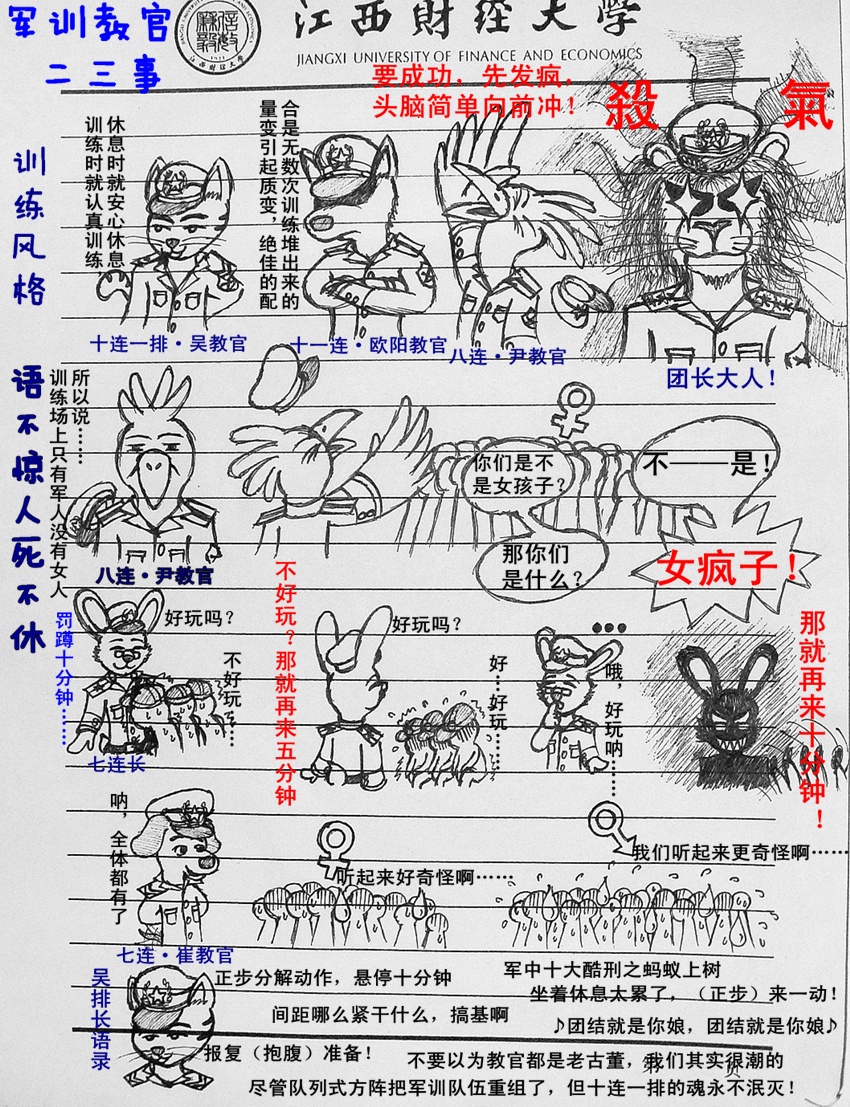 军训教官
二三事
江西财经大学
JIANGXI UNIVERSITY OF FINANCE AND ECONOMICS
要成功，先发疯，
头脑简单向前冲！
殺氣
训练风格
休息时就安心休息
训练时就认真训练
合是无数次训练堆出来的
量变引起质变，绝佳的配
十连一排·吴教官
十一连·欧阳教官
八连·尹教官
团长大人！
语不惊人死不休
所以说……
训练场上只有军人没有女人
八连·尹教官
你们是不
是女孩子？
不——是！
那你们
是什么？
女疯子！
罚蹲十分钟……
好玩吗？
不好玩……
七连长
不好玩？那就再来五分钟
好玩吗？
好…好玩……
哦，好玩呐………
那就再来十分钟！
呐，全体都有了
七连·崔教官
听起来好奇怪啊……
我们听起来更奇怪啊……
吴排长语录
正步分解动作，悬停十分钟
军中十大酷刑之蚂蚁上树
坐着休息太累了，（正步）来一动！
间距哪么紧干什么，搞基啊
♪团结就是你娘，团结就是你娘♪
报复（抱腹）准备！
不要以为教官都是老古董，我们其实很潮的
尽管队列式方阵把军训队伍重组了，但十连一排的魂永不泯灭！